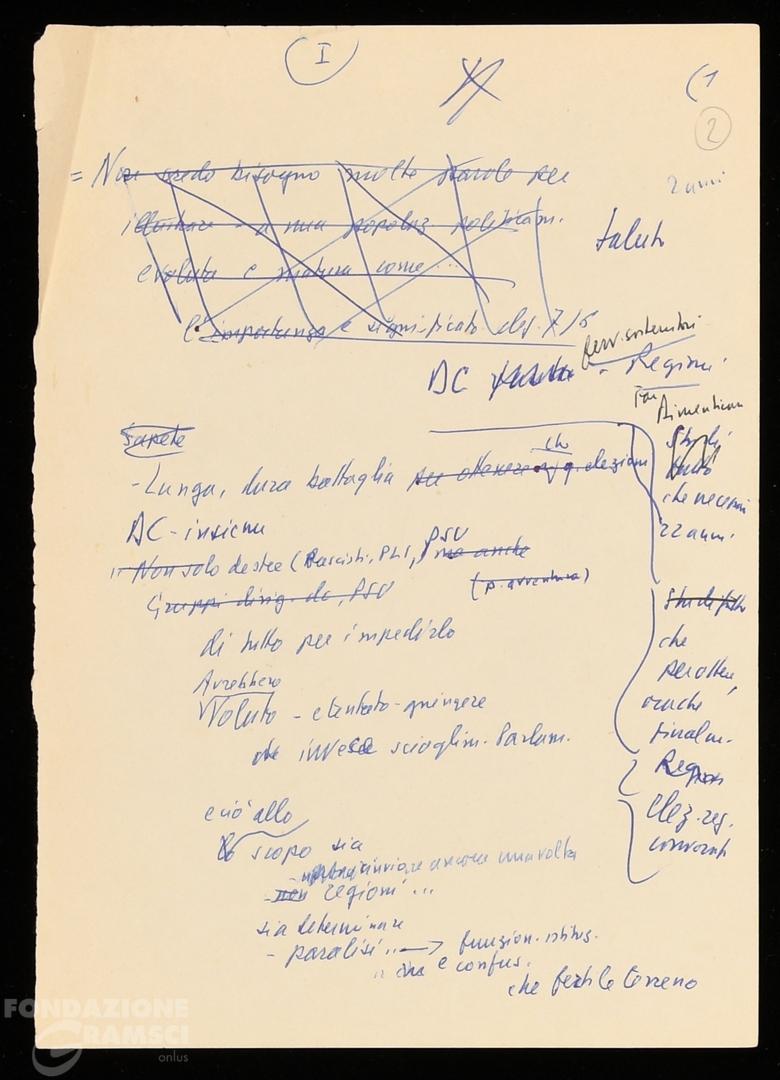 I
(1
2
= Non credo bisogno molte parole per
2 anni
illustrare - a una popolaz. politicam.
Saluto
evoluta e matura come ...
l'importanza e significato elez. 7/6
ferv. sostenitori
DC - Regioni
Dimentican
Sapete
- Lunga, dura battaglia per ottenere che q. elezioni
che necessari
DC - insieme
22 anni.
" Non solo destre (Fascisti, PLI, PSU ma anche
Gruppi dirig. dc, PSU (p. avventura)
di tutto per impedirlo
che
Avrebbero
per otten.
Voluto - e tentato - giungere
anche
che invece scioglim. Parlam.
finalm.
Regioni
e ciò allo
Elez. reg.
lo scopo sia
rinviare ancora una volta
- non regioni ...
sia determinare
- paralisi .. → funzion. istituz.
" e confus.
che fertile terreno
FONDAZIONE
GRAMSCI
onlus